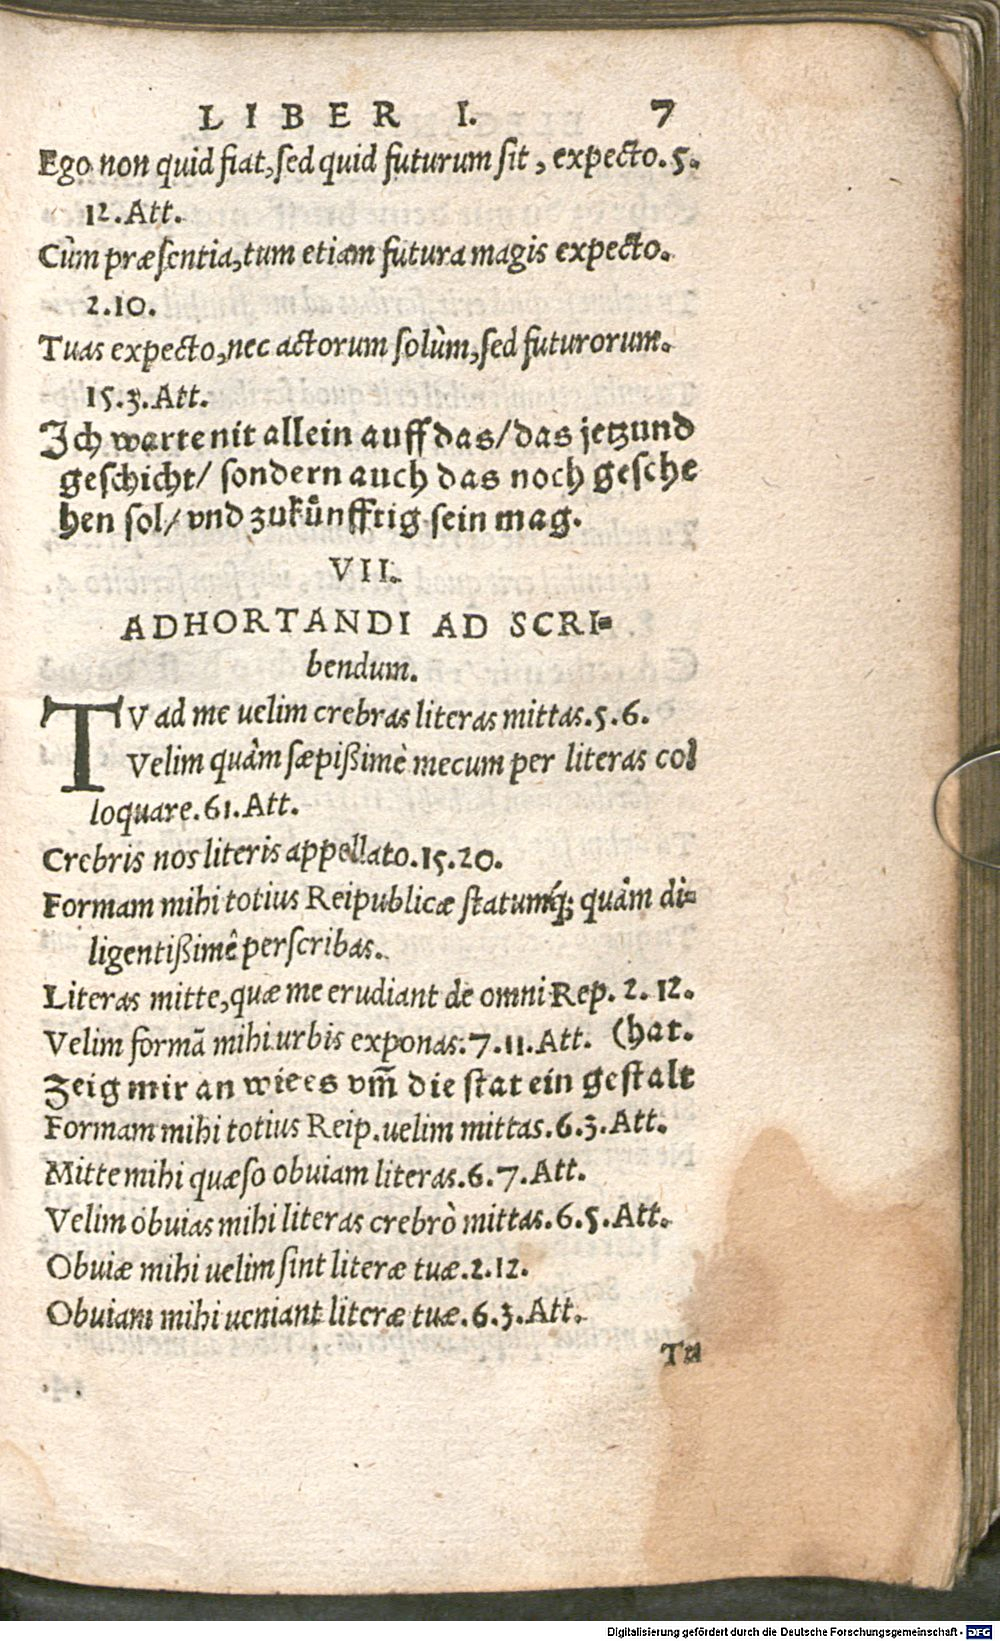 LIBER I. 7
Ego non quid fiat, sed quid futurum sit, expecto. 5.
12. Att.
Cùm præsentia, tum etiam futura magis expecto.
2.10.
Tuas expecto, nec actorum solùm, sed futurorum.
15.3. Att.
Ich warte nit allein auff das/ das jetzund
geschicht/ sondern auch das noch gesche
hen sol/ vnd zukůnfftig sein mag.
VII.
ADHORTANDI AD SCRI=
bendum.
TV ad me uelim crebras literas mittas. 5. 6.
Velim quàm sæpißimè mecum per literas col
loquare. 61. Att.
Crebris nos literis appellato. 15. 20.
Formam mihi totius Reipublicæ statumq́; quàm di=
ligentißimê perscribas.
Literas mitte, quæ me erudiant de omni Rep. 2. 12.
Velim formā mihi urbis exponas. 7. 11. Att. (hat.
Zeig mir an wie es vm̄ die stat ein gestalt
Formam mihi totius Reip. uelim mittas. 6. 3. Att.
Mitte mihi quæso obuiam literas. 6. 7. Att.
Velim obuias mihi literas crebrò mittas. 6. 5. Att.
Obuiæ mihi uelim sint literæ tuæ. 2. 12.
Obuiam mihi ueniant literæ tuæ. 6. 3. Att.
Tu
Digitalisierung gefördert durch die Deutsche Forschungsgemeinschaft - DFG